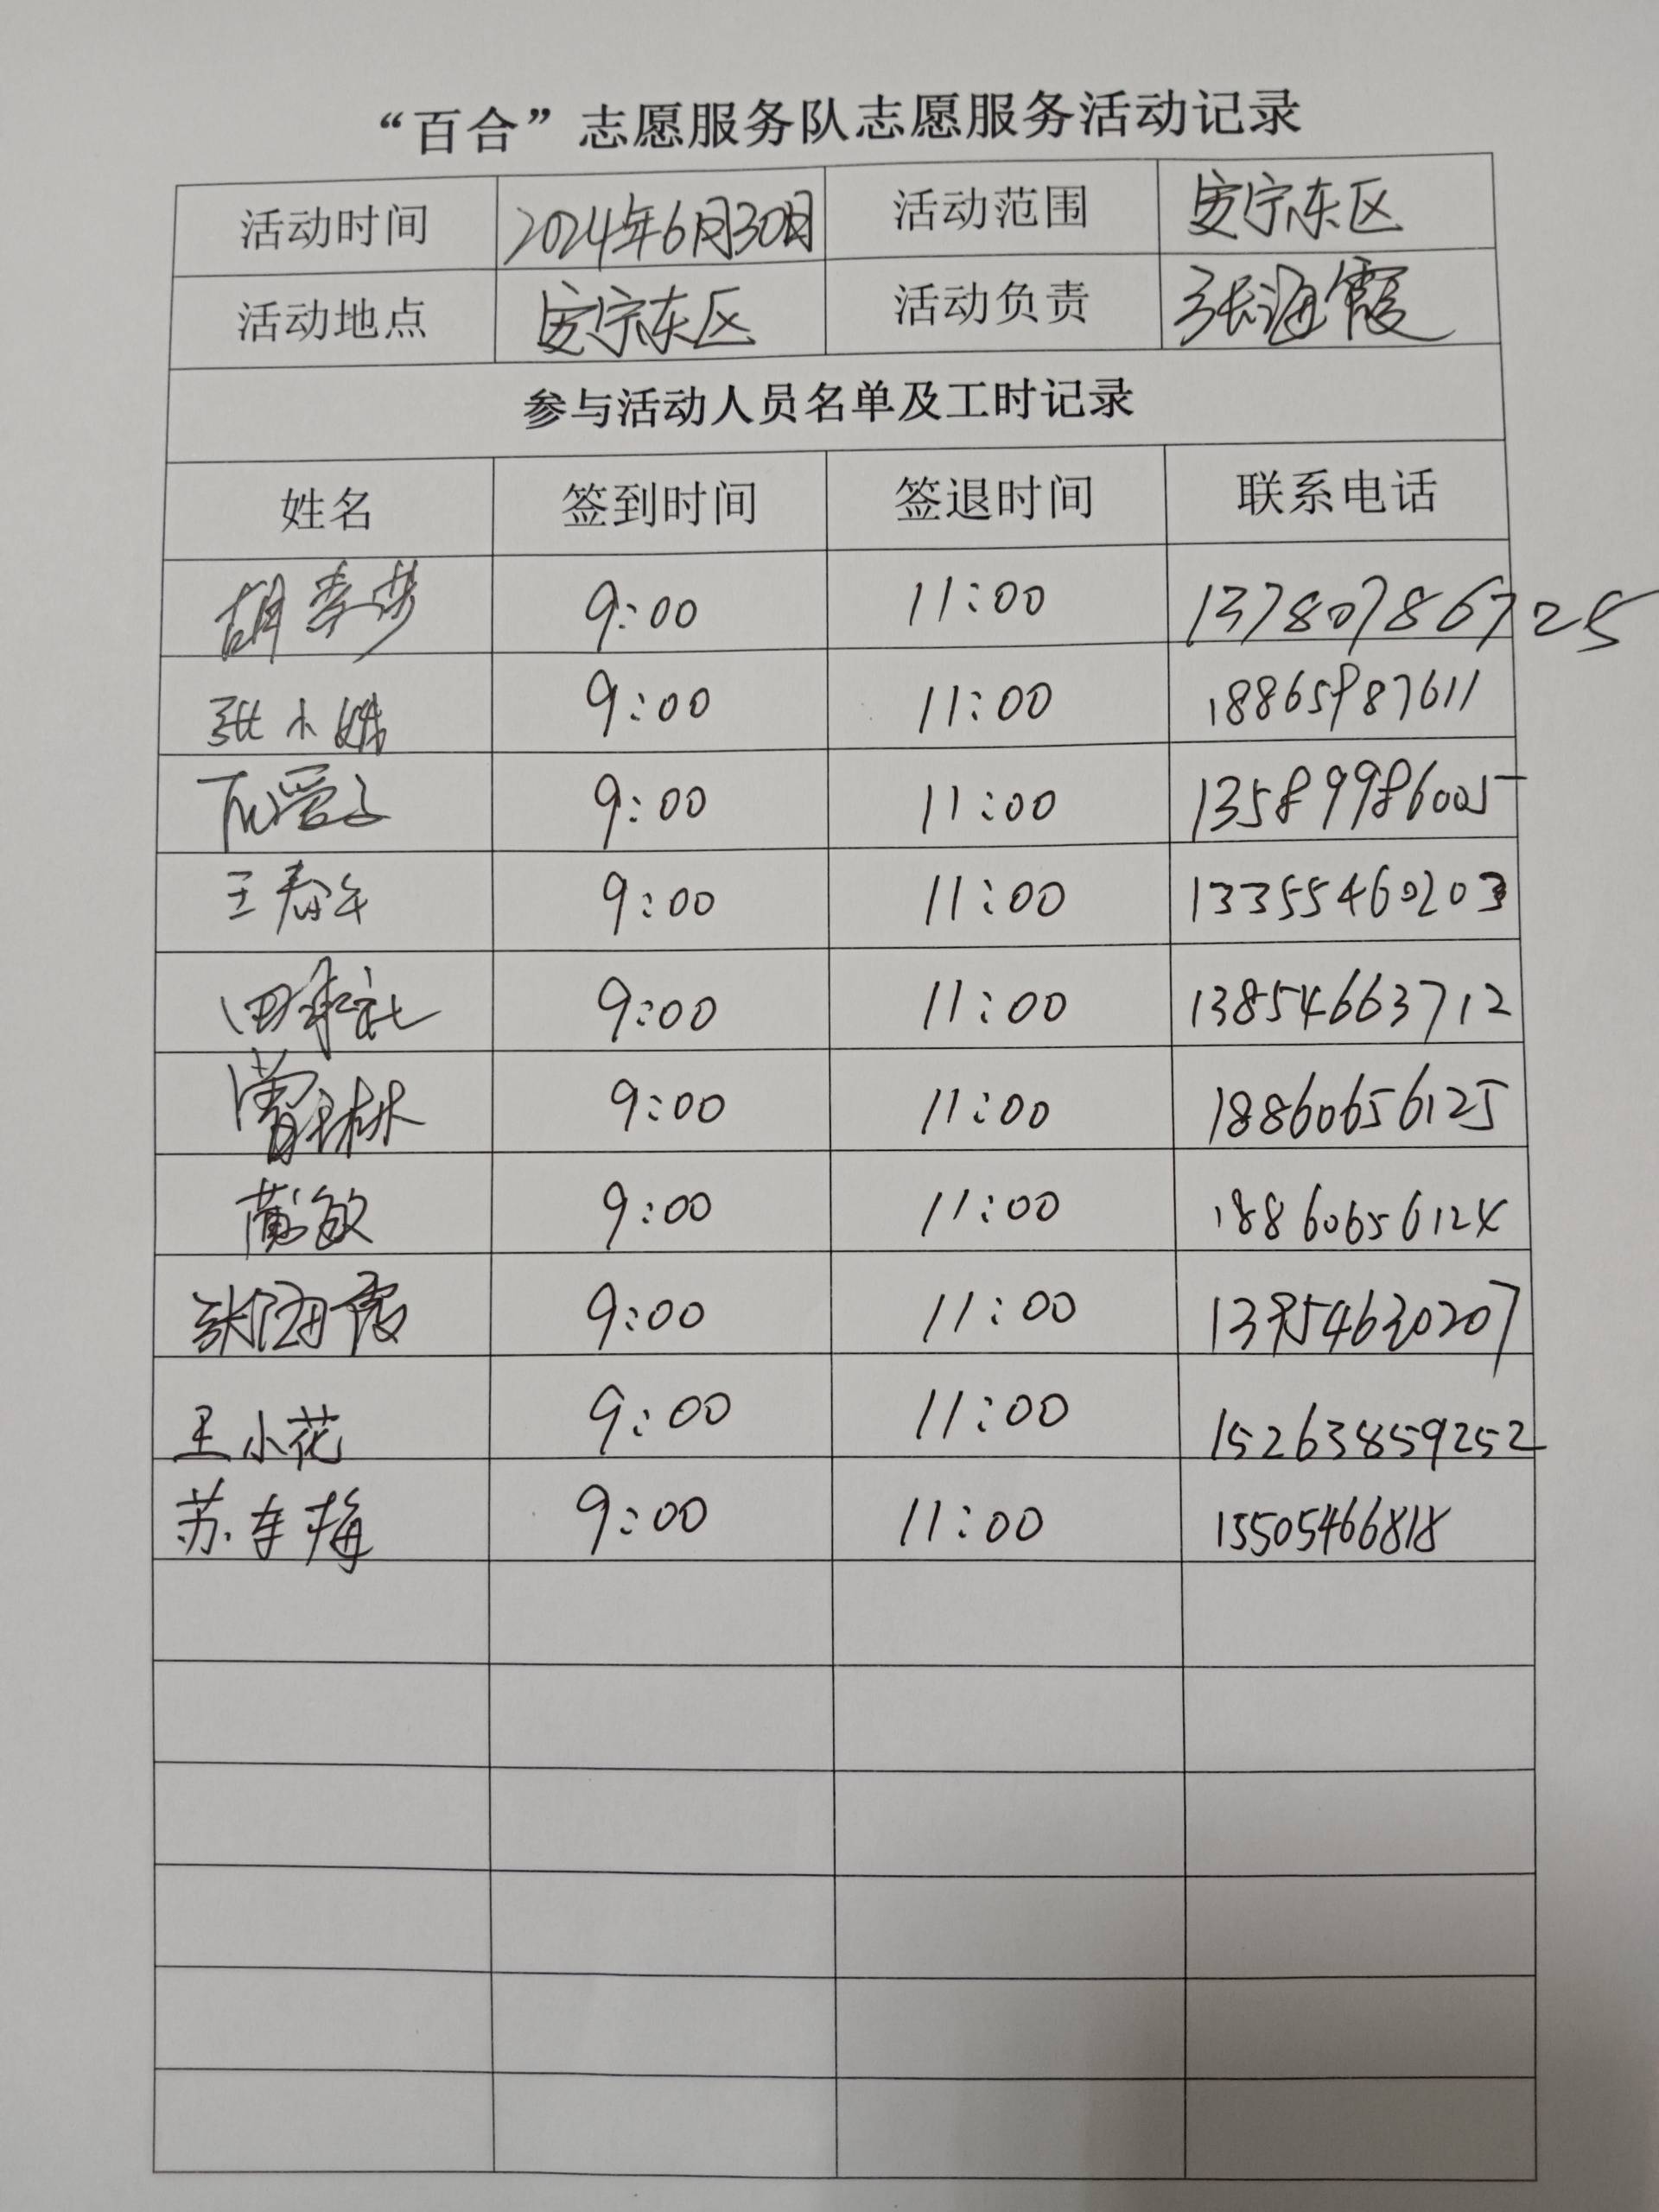 “百合”志愿服务队志愿服务活动记录
活动时间 2024年6月30日 活动范围 安宁东区
活动地点 安宁东区 活动负责 张海霞
参与活动人员名单及工时记录
姓名 签到时间 签退时间 联系电话
胡 9:00 11:00 13780786725
张小娥 9:00 11:00 18865987611
9:00 11:00 13589986005
王春午 9:00 11:00 13355460203
田 9:00 11:00 13854663712
曹 林 9:00 11:00 18860656125
敏 9:00 11:00 18860656124
张海霞 9:00 11:00 13954630207
王小花 9:00 11:00 152638859252
苏冬梅 9:00 11:00 15505466818